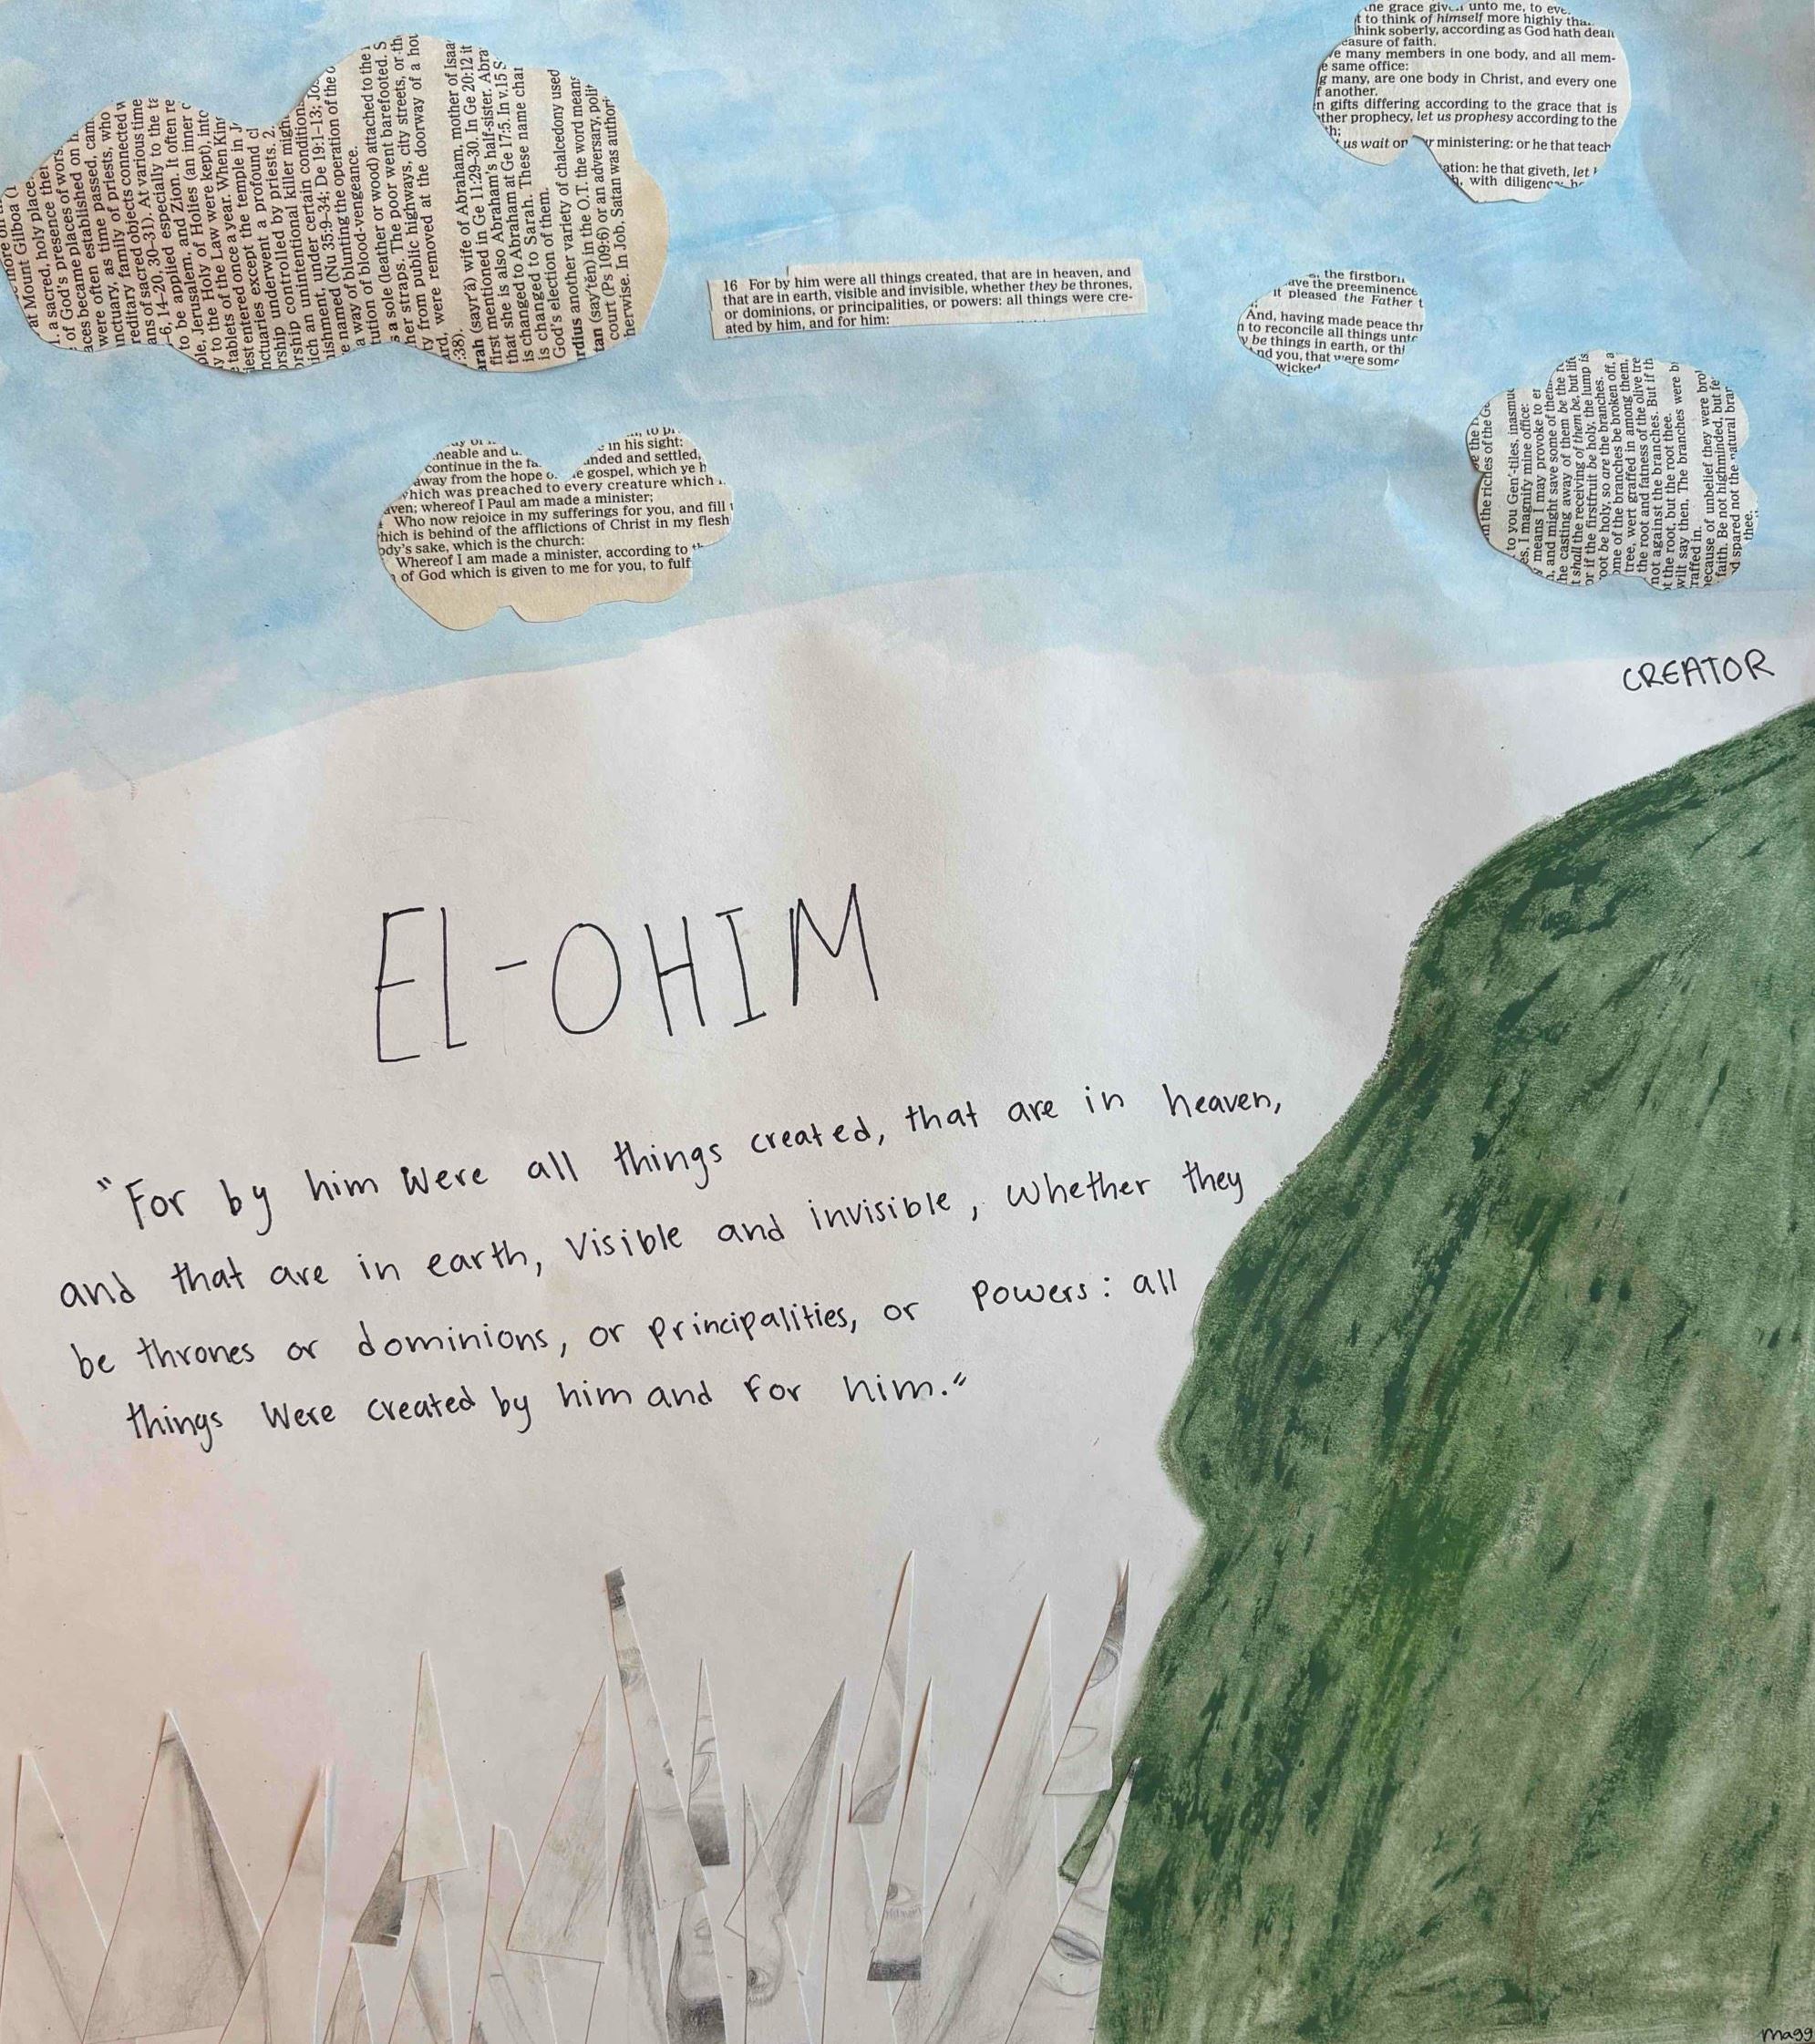 at Mount Gilboa (1
a sacred, holy place.
of God's presence
aces became places of
were often established on
nctuary, as time passed, cam
reditary family of priests, who
ans of sacred objects connected w
6, 14-20, 30-31). At various time
to be applied especially to the
ple, Jerusalem, and Zion. It often re
y to the Holy of Holies (an inner
tablets of the Law were kept), into
est entered once a year. When
nctuaries except the temple in
orship underwent a profound
orship controlled by priests. 2.
ich an unintentional killer might
ishment, under certain condition
e named (Nu 35:9-34; De 19:1-13;
a way of blunting the operation of the
tution of blood-vengeance.
s a sole (leather or wood) attached to the
her straps. The poor went barefooted. S
ty from public highways, city streets, or th
rd, were removed at the doorway of a
:38).
arah (sayr'ä) wife of Abraham, mother of Isaa
first mentioned in Ge 11:29-30. In Ge 20:12 it
that she is also Abraham's half-sister. Abra
is changed to Abraham at Ge 17:5. In v.15 S
is changed to Sarah. These name
God's election of them.
rdius another variety of chalcedony used
tan (say'tën) in the O.T. the word means
court (Ps 109:6) or an adversary,
herwise. In Job, Satan was author
ne grace unto me, to
t to think of himself more highly
think soberly, according as God hath dealt
easure of faith.
e many members in one body, and all mem-
e same office:
g many, are one body in Christ, and every one
f another.
n gifts differing according to the grace that is
ther prophecy, let us prophesy according to the
h;
us wait on ministering: or he that teach
ation: he that giveth, let
with
16 For by him were all things created, that are in heaven, and
that are in earth, visible and invisible, whether they be thrones,
or dominions, or principalities, or powers: all things were cre-
ated by him, and for him:
the firstborn
ave the preeminence
it pleased the Father t
And, having made peace
n to reconcile all things unto
y be things in earth, or
nd you, that were some
wicked
in his sight:
meable and
continue in the nded and settled,
away from the hope gospel, which ye h
which was preached to every creature which
aven; whereof I Paul am made a minister;
Who now rejoice in my sufferings for you, and fill
hich is behind of the afflictions of Christ in my flesh
ody's sake, which is the church:
Whereof I am made a minister, according to
of God which is given to me for you, to
be the
n the riches of the Ge
to you Gen'-tiles, inasmu
es, I magnify mine office:
means I may provoke to
, and might save some of them
he casting away of them be the
t shall the receiving of them be, but
or if the firstfruit be holy, the lump is
oot be holy, so are the branches.
ome of the branches be broken off, a
tree, wert graffed in among them,
the root and fatness of the olive tre
not against the branches. But if th
t the root, but the root thee.
wilt say then, The branches were
raffed in.
because of unbelief they were
faith. Be not highminded, but
d spared not the natural
thee.
CREATOR
EL-OHIM
"For by him were all things created, that are in heaven,
and that are in earth, visible and invisible, whether they
be thrones or dominions, or principalities, or powers: all
things were created by him and for him."
magg